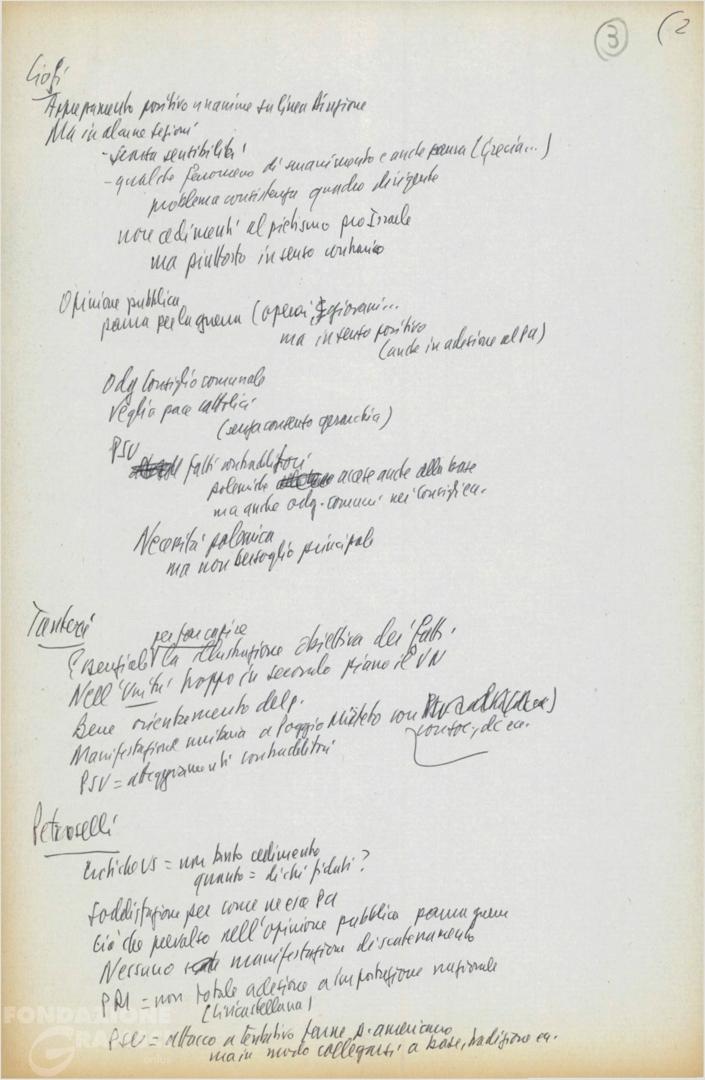 3 (2
Ciofi
Apprezzamento positivo unanime su linea Direzione
Ma in alcune sezioni
- scarsa sensibilità
- qualche fenomeno di smarrimento e anche paura (Grecia...)
problema consistenza quadro dirigente
non cedimenti al pietismo pro Israele
ma piuttosto in senso contrario
Opinione pubblica
paura per la guerra (operai, giovani...
ma in senso positivo
(anche in adesione al Pci)
Odg Consiglio comunale
Veglia pace cattolici
(senza consenso gerarchia)
PSU
fatti contraddittori
polemiche accese anche alla base
ma anche odg. comuni nei Consigli ecc.
Necessità polemica
ma non bersaglio principale
per far capire
Essenziale la illustrazione obiettiva dei fatti.
Nell'Unità troppo in secondo piano il VN
Bene orientamento
Manifestazione unitaria a Poggio Mirteto con
con soc., dc ecc.
PSU = atteggiamenti contraddittori
Petroselli
Critiche US = non tanto cedimento
quanto = di chi fidati?
Soddisfazione per come ne esce Pci
Ciò che prevalso nell'opinione pubblica paura guerra
Nessuna manifestazione di scatenamento
PRI = non totale adesione a impostazione nazionale
(Civitacastellana)
PSU = attacco a tentativo
ma in modo collegarsi a base, tradizione ecc.
FONDAZIONE
GRAMSCI